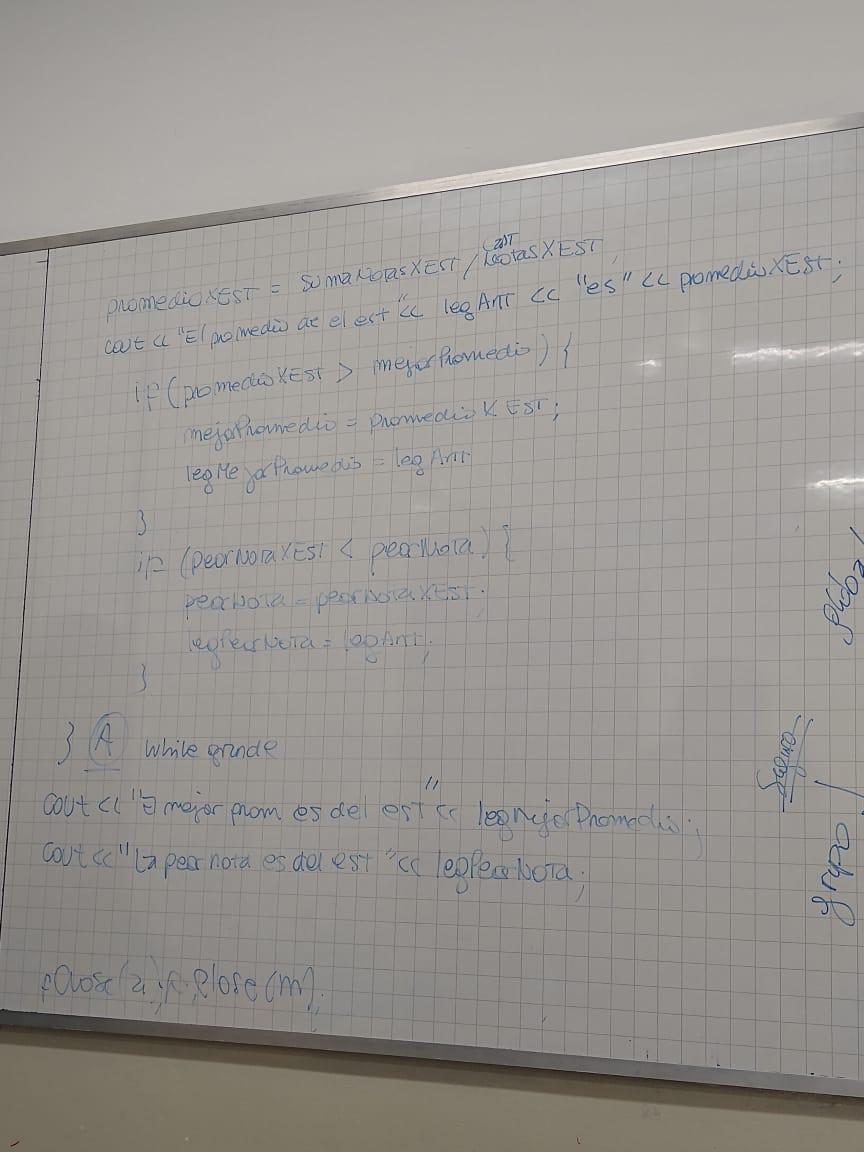 promedioXEST = sumaNotasXEST / cantNotasXEST;
cout << "El promedio de el est" << legAnt << "es" << promedioXEst;
if (promedioXEST > mejorPromedio) {
mejorPromedio = promedioXEST;
legMejorPromedio = legAnt
}
if (peorNotaXEST < peorNota) {
peorNota = peorNotaXEST;
legPeorNota = legAnt;
}
} A while grande
cout << "El mejor prom es del est" << legMejorPromedio;
cout << "La peor nota es del est" << legPeorNota;
fclose(a); fclose(m);
global
Seguro
grupo /